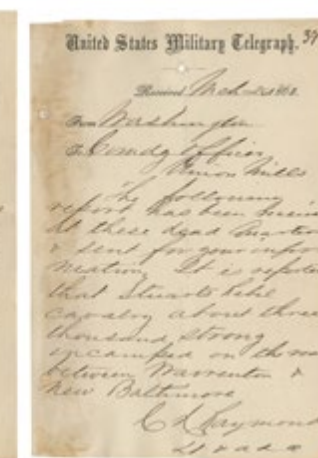 United States Military Telegraph.
Received, Mch 186
From Washington
To Comdg Officer
Union Mills
The following
report has been
at these Head Quarters
& sent for your infor
mation. It is reported
that Stuarts Rebel
cavalry about three
thousand strong
encamped on the
between Warrenton &
New Baltimore
C L Raymond
Lt & a